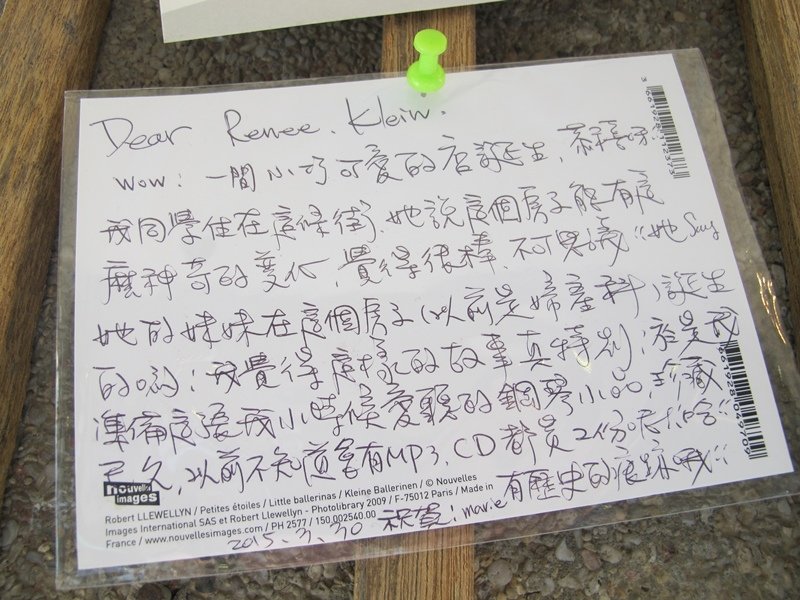 Dear Renee. Klein.
Wow! 一間小巧可愛的店誕生, 恭喜呀
我同學住在這條街, 她說這個房子能有這
麼神奇的變化, 覺得很棒, 不可思議!! 她 Say
她的妹妹在這個房子(以前是婦產科)誕生
的喲! 我覺得這樣的故事真特別, 於是我
準備這張我小時候愛聽的鋼琴小品, 珍藏
已久, 以前不知道會有MP3, CD都買2份呢!哈!!
有歷史的痕跡哦!!
2015. 3. 30 祝賀! marie
nouvelles images
Robert LLEWELLYN / Petites étoiles / Little ballerinas / Kleine Ballerinen / © Nouvelles
Images International SAS et Robert Llewellyn - Photolibrary 2009 / F-75012 Paris / Made in
France / www.nouvellesimages.com / PH 2577 / 150.002540.00